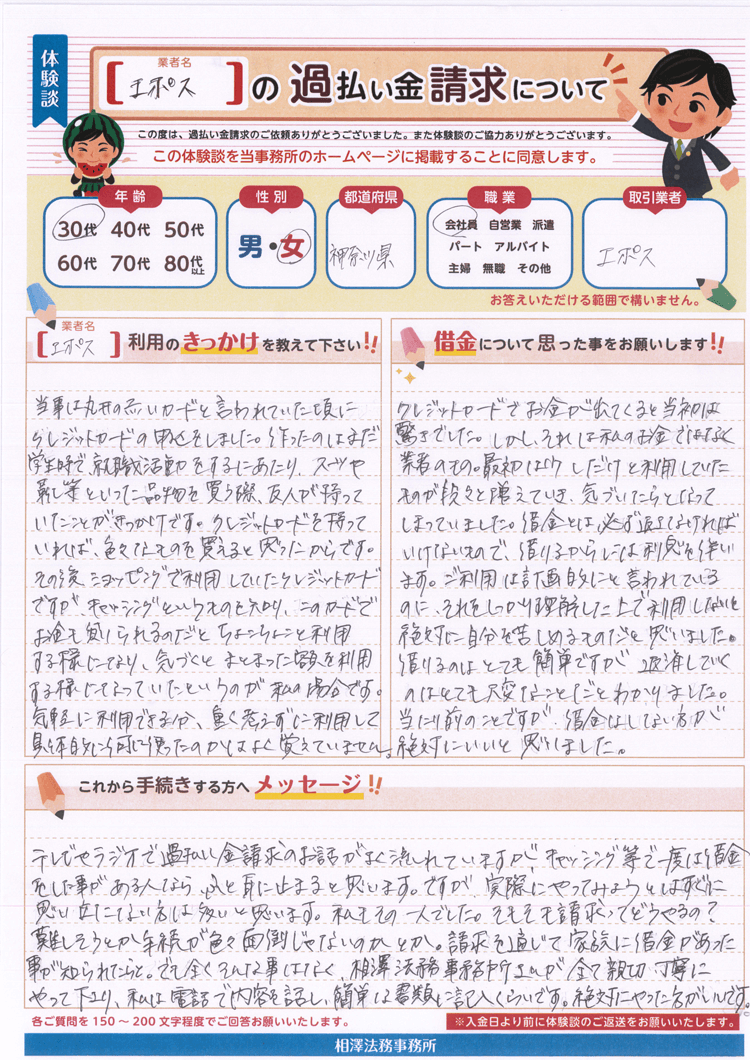 体験談
業者名
[エポス]の過払い金請求について
この度は、過払い金請求のご依頼ありがとうございました。また体験談のご協力ありがとうございます。
この体験談を当事務所のホームページに掲載することに同意します。
年齢
30代 40代 50代
60代 70代 80代以上
性別
男・女
都道府県
神奈川県
職業
会社員 自営業 派遣
パート アルバイト
主婦 無職 その他
取引業者
エポス
お答えいただける範囲で構いません。
業者名
[エポス]利用のきっかけを教えて下さい!!
当事は丸井の赤いカードと言われていた頃に
クレジットカードの申込をしました。作ったのはまだ
学生時で就職活動をするにあたり、スーツや
靴等といった品物を買う際、友人が持って
いたことがきっかけです。クレジットカードを持って
いれば、色々なものを買えると思ったからです。
その後ショッピングで利用していたクレジットカード
ですが、キャッシングというものを知り、このカードで
お金も借りられるのだとちょこちょこと利用
する様になり、気づくとまとまった額を利用
する様になっていたというのが私の場合です。
気軽に利用できる分、重く考えずに利用して
具体的に何に使ったのかはよく覚えていません。
借金について思った事をお願いします!!
クレジットカードでお金が出てくると当初は
驚きでした。しかし、それは私のお金ではなく
業者のもの。最初は少しだけと利用していた
ものが段々と増えていき、気づいたらとなって
しまっていました。借金とは、必ず返さなければ
いけないもので、借りるからには利息を伴い
ます。ご利用は計画的にと言われている
のに、それをしっかり理解した上で利用しないと
絶対に自分を苦しめるものだと思いました。
借りるのはとても簡単ですが、返済していく
のはとても大変なことだとわかりました。
当たり前のことですが、借金はしない方が
絶対にいいと思いました。
これから手続きする方へメッセージ!!
テレビやラジオで過払い金請求のお話がよく流れていますが、キャッシング等で一度は借金
をした事がある人なら、ふと耳に止まると思います。ですが、実際にやってみようとはすぐに
思い立たない方は多いと思います。私もその一人でした。そもそも請求ってどうやるの?
難しそうとか手続が色々面倒じゃないのかとか。請求を通じて家族に借金があった
事が知られたらと。でも全くそんな事はなく、相澤法務事務所さんが全て親切丁寧に
やって下さり、私は電話で内容を話し、簡単な書類に記入くらいです。絶対にやった方がいいです。
各ご質問を150～200文字程度でご回答お願いいたします。
※入金日より前に体験談のご返送をお願いいたします。
相澤法務事務所